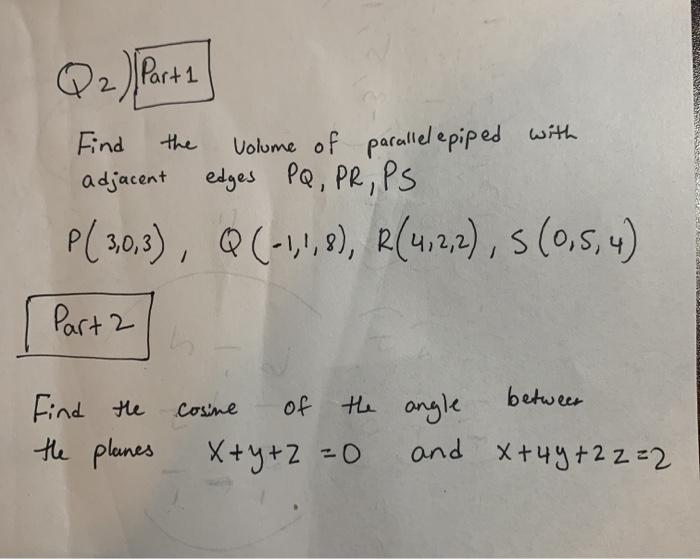 Q2) Part 1
Find the Volume of parallelepiped with
adjacent edges PQ, PR, PS
P(3,0,3), Q(-1,1,8), R(4,2,2), S(0,5,4)
Part 2
Find the cosine of the angle between
the planes x+y+z=0 and x+4y+2z=2